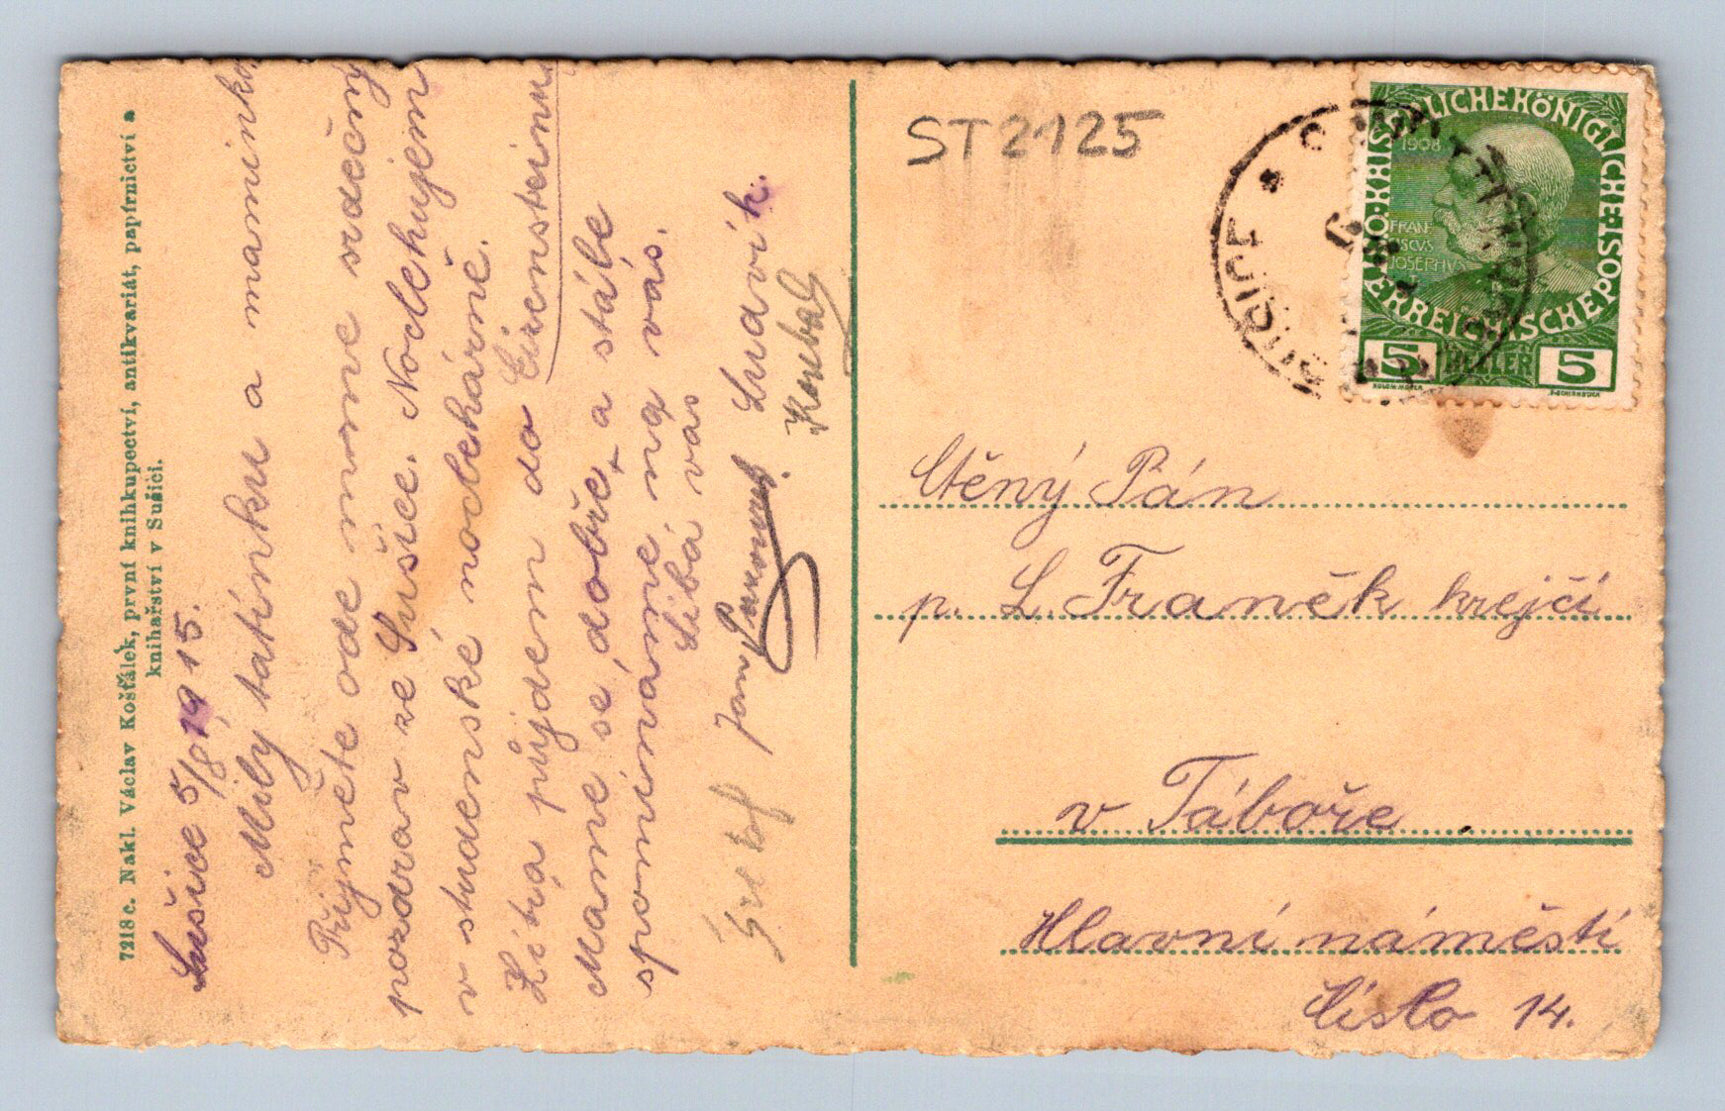 7218 c. Nakl. Václav Košťálek, první knihkupectví, antikvariát, papírnictví a
knihařství v Sušici.
Sušice 5/8 1915.
Milý tatínku a maminko.
Přijměte ode mne srdečný
pozdrav ze Sušice. Noclehujem
v studenské noclehárně.
Zítra půjdem do Eisensteinu
Máme se dobře, a stále
spomínáme na vás.
Líbá vás
Slavík.
ST2125
KAISERLICHE KÖNIGLICHE ÖSTERREICHISCHE POST
1908
FRAN
CISCUS
JOSEPHUS
5 HELLER 5
SUŠICE
Ctěný Pán
p. L. Franěk krejčí
v Táboře
Hlavní náměstí
číslo 14.